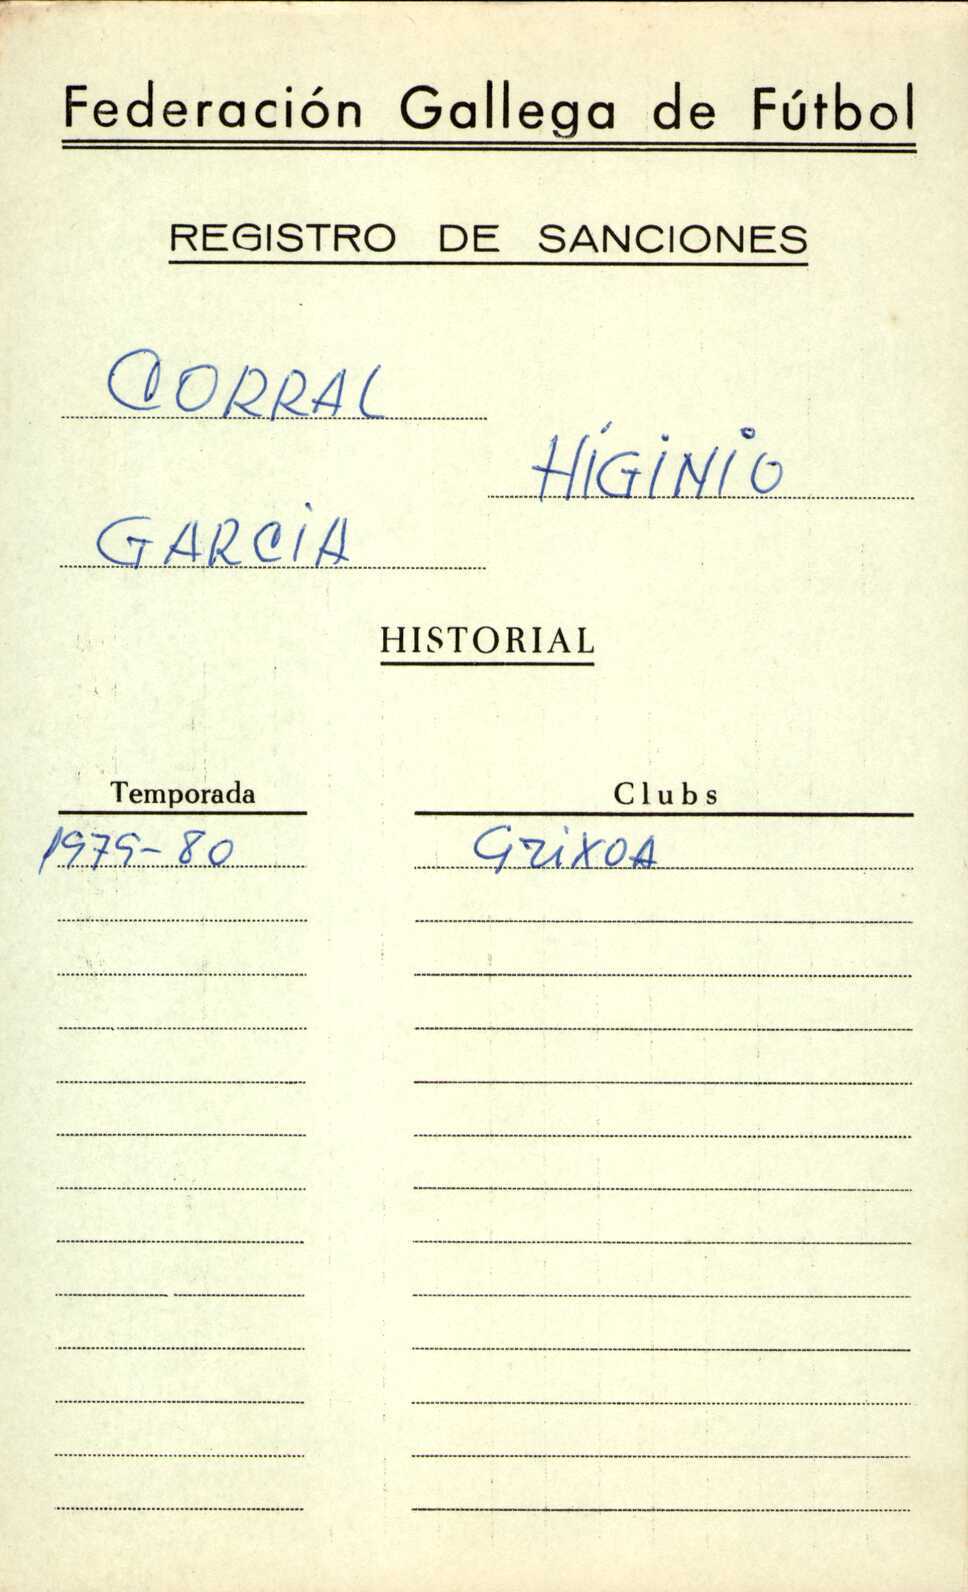 Federación Gallega de Fútbol
REGISTRO DE SANCIONES
CORRAL
HIGINIO
GARCIA
HISTORIAL
Temporada Clubs
1979-80 GRIXOA